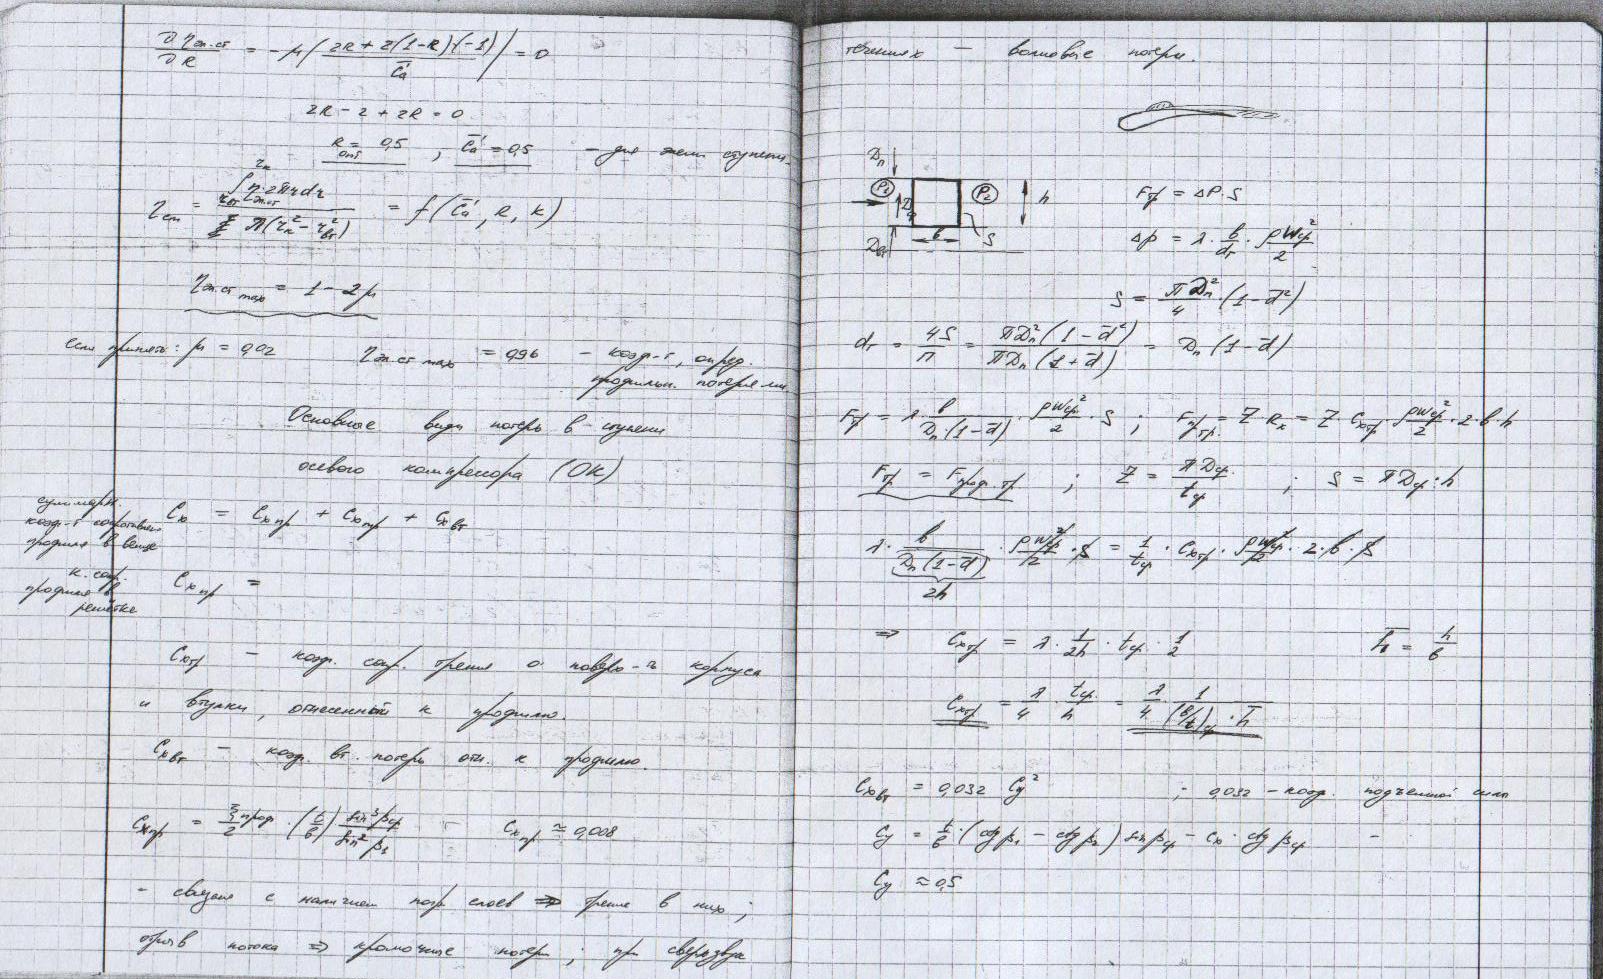 ∂η эл.ст / ∂R = -μ( (2R + 2(1-R)·(-1)) / c̄a' ) = 0
2R - 2 + 2R = 0
R опт = 0,5 , c̄a' = 0,5 - для элем ступени.
η ст = ∫ η эл.ст · 2πr dr / π(r к² - r вт²) = f(c̄a', R, k)
η эл.ст max = 1 - 2μ
если принять: μ = 0,02 η эл.ст max = 0,96 - коэф-т, опред.
профильн. потерями
Основные виды потерь в ступени
осевого компрессора (ОК)
суммарн.
коэф-т сопротивлен
профиля в венце
Cx = Cx пр + Cx тр + Cx вт
к. сопр.
профиля в
решётке
Cx пр =
Cx тр - коэф. сопр. трения о поверх-ть корпуса
и втулки, отнесенный к профилю.
Cx вт - коэф. вт. потерь отн. к профилю.
Cx пр = ξ проф / 2 · (t/b) sin³β ср / sin²β₁ - Cx пр ≈ 0,008
- связана с наличием погр слоев ⇒ трение в них;
отрыв потока ⇒ кромочные потери; при сверхзвук
течениях - волновые потери.
Dп
P₁ P₂ h
Dвт b S
Fтр = ΔP·S
Δp = λ · b/dг · ρWср²/2
S = πDп²/4 · (1 - d̄²)
dг = 4S/П = πDп²(1 - d̄²) / πDп(1 + d̄) = Dп(1 - d̄)
Fтр = λ b/(Dп·(1 - d̄)) · ρWср²/2 · S ; Fпр тр. = Z·Rx = Z·Cx тр · ρWср²/2 · 2·b·h
Fтр = Fпроф.тр ; Z = πDср / tср ; S = πDср·h
λ · b/(Dп(1 - d̄)) · ρWср²/2 · S = 1/tср · Cx тр · ρWср²/2 · 2·b·S
2h
⇒ Cx тр = λ · 1/2h · tср · 1/2 h̄ = h/b
Cx тр = λ/4 · tср/h = λ/4 · 1/((b/t)ср · h̄)
Cx вт = 0,032 Cy² ; 0,032 - коэф. подъемной силы
Cy = t/b · (ctgβ₁ - ctgβ₂) sinβср - Cx · ctgβср -
Cy ≈ 0,5